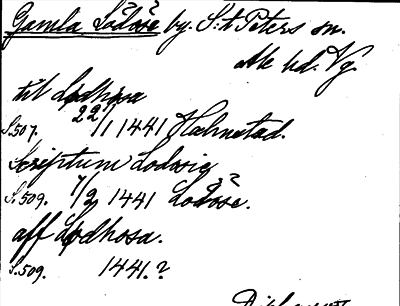 Gamla Lödöse by. S:t Peters sn.
Ale hd. Vg.
til Lødhosa
S.507. 22/1 1441 Halmstad.
Scriptum Lodosig
S.509. 7/2 1441 Lödöse.
aff Lødhosa.
S.509. 1441.?